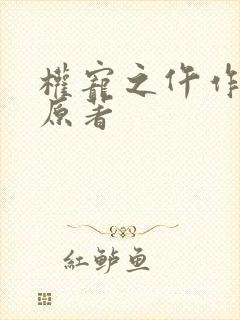 權寵之仵作
原著
紅鱸鱼